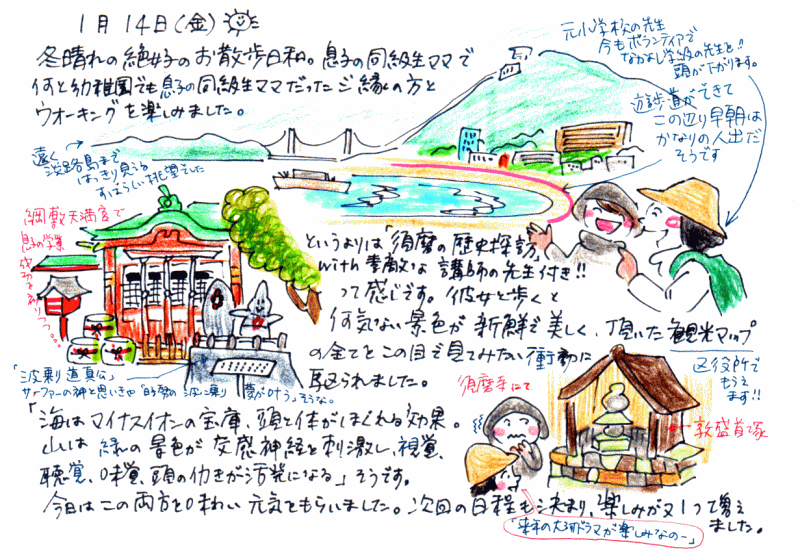 1月14日(金)
冬晴れの絶好のお散歩日和。息子の同級生ママで
何と幼稚園でも息子の同級生ママだったご縁の方と
ウオーキングを楽しみました。
元小学校の先生
今もボランティアで
なかよし学級の先生と!!
頭が下がります。
遊歩道ができて
この辺り早朝は
かなりの人出だ
そうです
遠く
淡路島まで
はっきり見える
すばらしい眺望でした
綱敷天満宮で
息子の学業
成功を祈りつつ…
というよりは「須磨の歴史探訪」
with 素敵な講師の先生付き!!
って感じです。彼女と歩くと
何気ない景色が新鮮で美しく、頂いた観光マップ
の全てをこの目で見てみたい衝動に
駆られました。
区役所で
もらえ
ます!!
「波乗り道真公」
サーファーの神と思いきや「時勢の波に乗り
夢が叶う」そうな。
須磨寺にて
敦盛首塚
「海はマイナスイオンの宝庫、頭と体がほぐれる効果。
山は緑の景色が交感神経を刺激し、視覚、
聴覚、味覚、頭の働きが活発になる」そうです。
今日はこの両方を味わい元気をもらいました。次回の日程も決まり、楽しみが又1つ増え
ました。
「来年の大河ドラマが楽しみなのー」